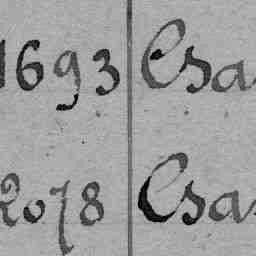 1693 Csa
2078 Csa